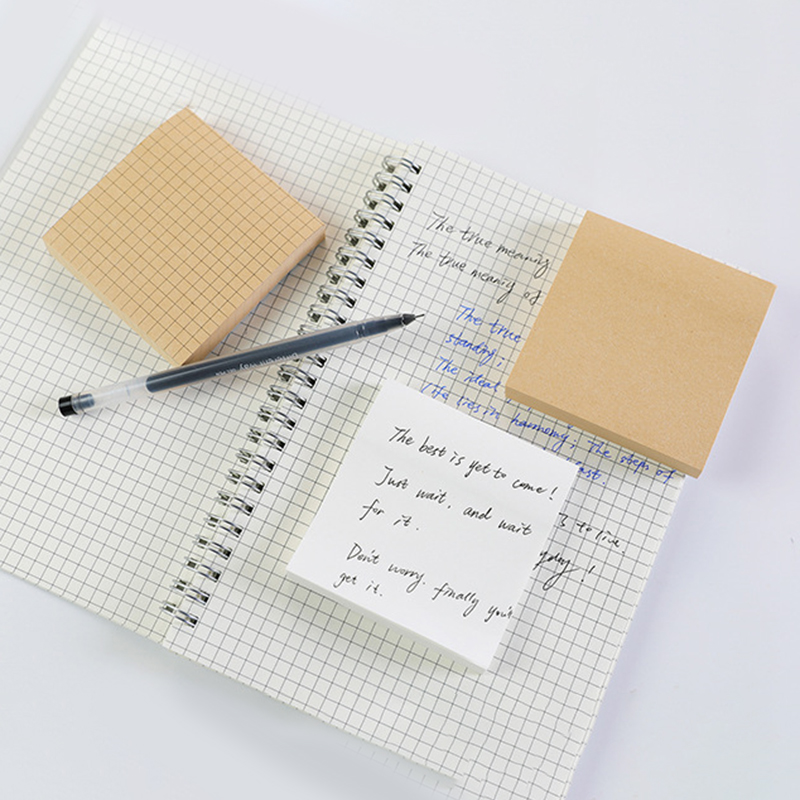 The true meaning
The true meaning of
The true
standing,
The ideal
life lies in harmony; the steps of
to live.
The best is yet to come!
Just wait, and wait
for it.
Don't worry. finally you'll
get it.